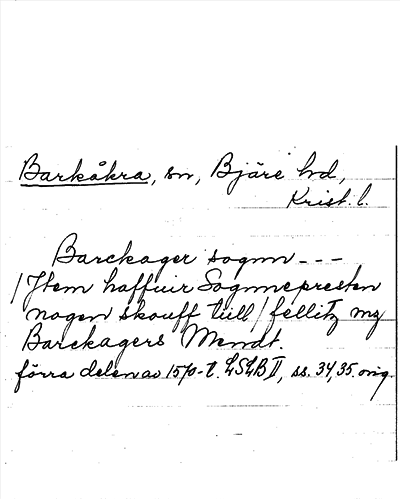 Barkåkra, sn, Bjäre hd,
Krist. l.
Barckager sognn ---
/Jtem haffuir Sognnepresten
nogen skouff tiill/fellitz mz
Barckagers Mendt.
förra delen av 1570-t. LSLB II, ss. 34, 35. orig.